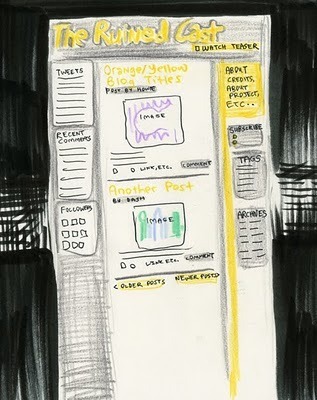 The Ruined Cast
WATCH TEASER
TWEETS
RECENT
COMMENTS
FOLLOWERS
Orange/Yellow
Blog Titles
POST BY
IMAGE
LINK, ETC.
COMMENT
Another Post
BY DASH
IMAGE
LINK, ETC.
COMMENT
< OLDER POSTS
NEWER POSTS
ABOUT
CREDITS,
ABOUT
PROJECT,
ETC..
SUBSCRIBE
TAGS
ARCHIVES